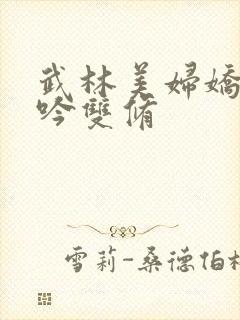 武林美婦嬌
吟雙脩
雪莉-桑德伯格